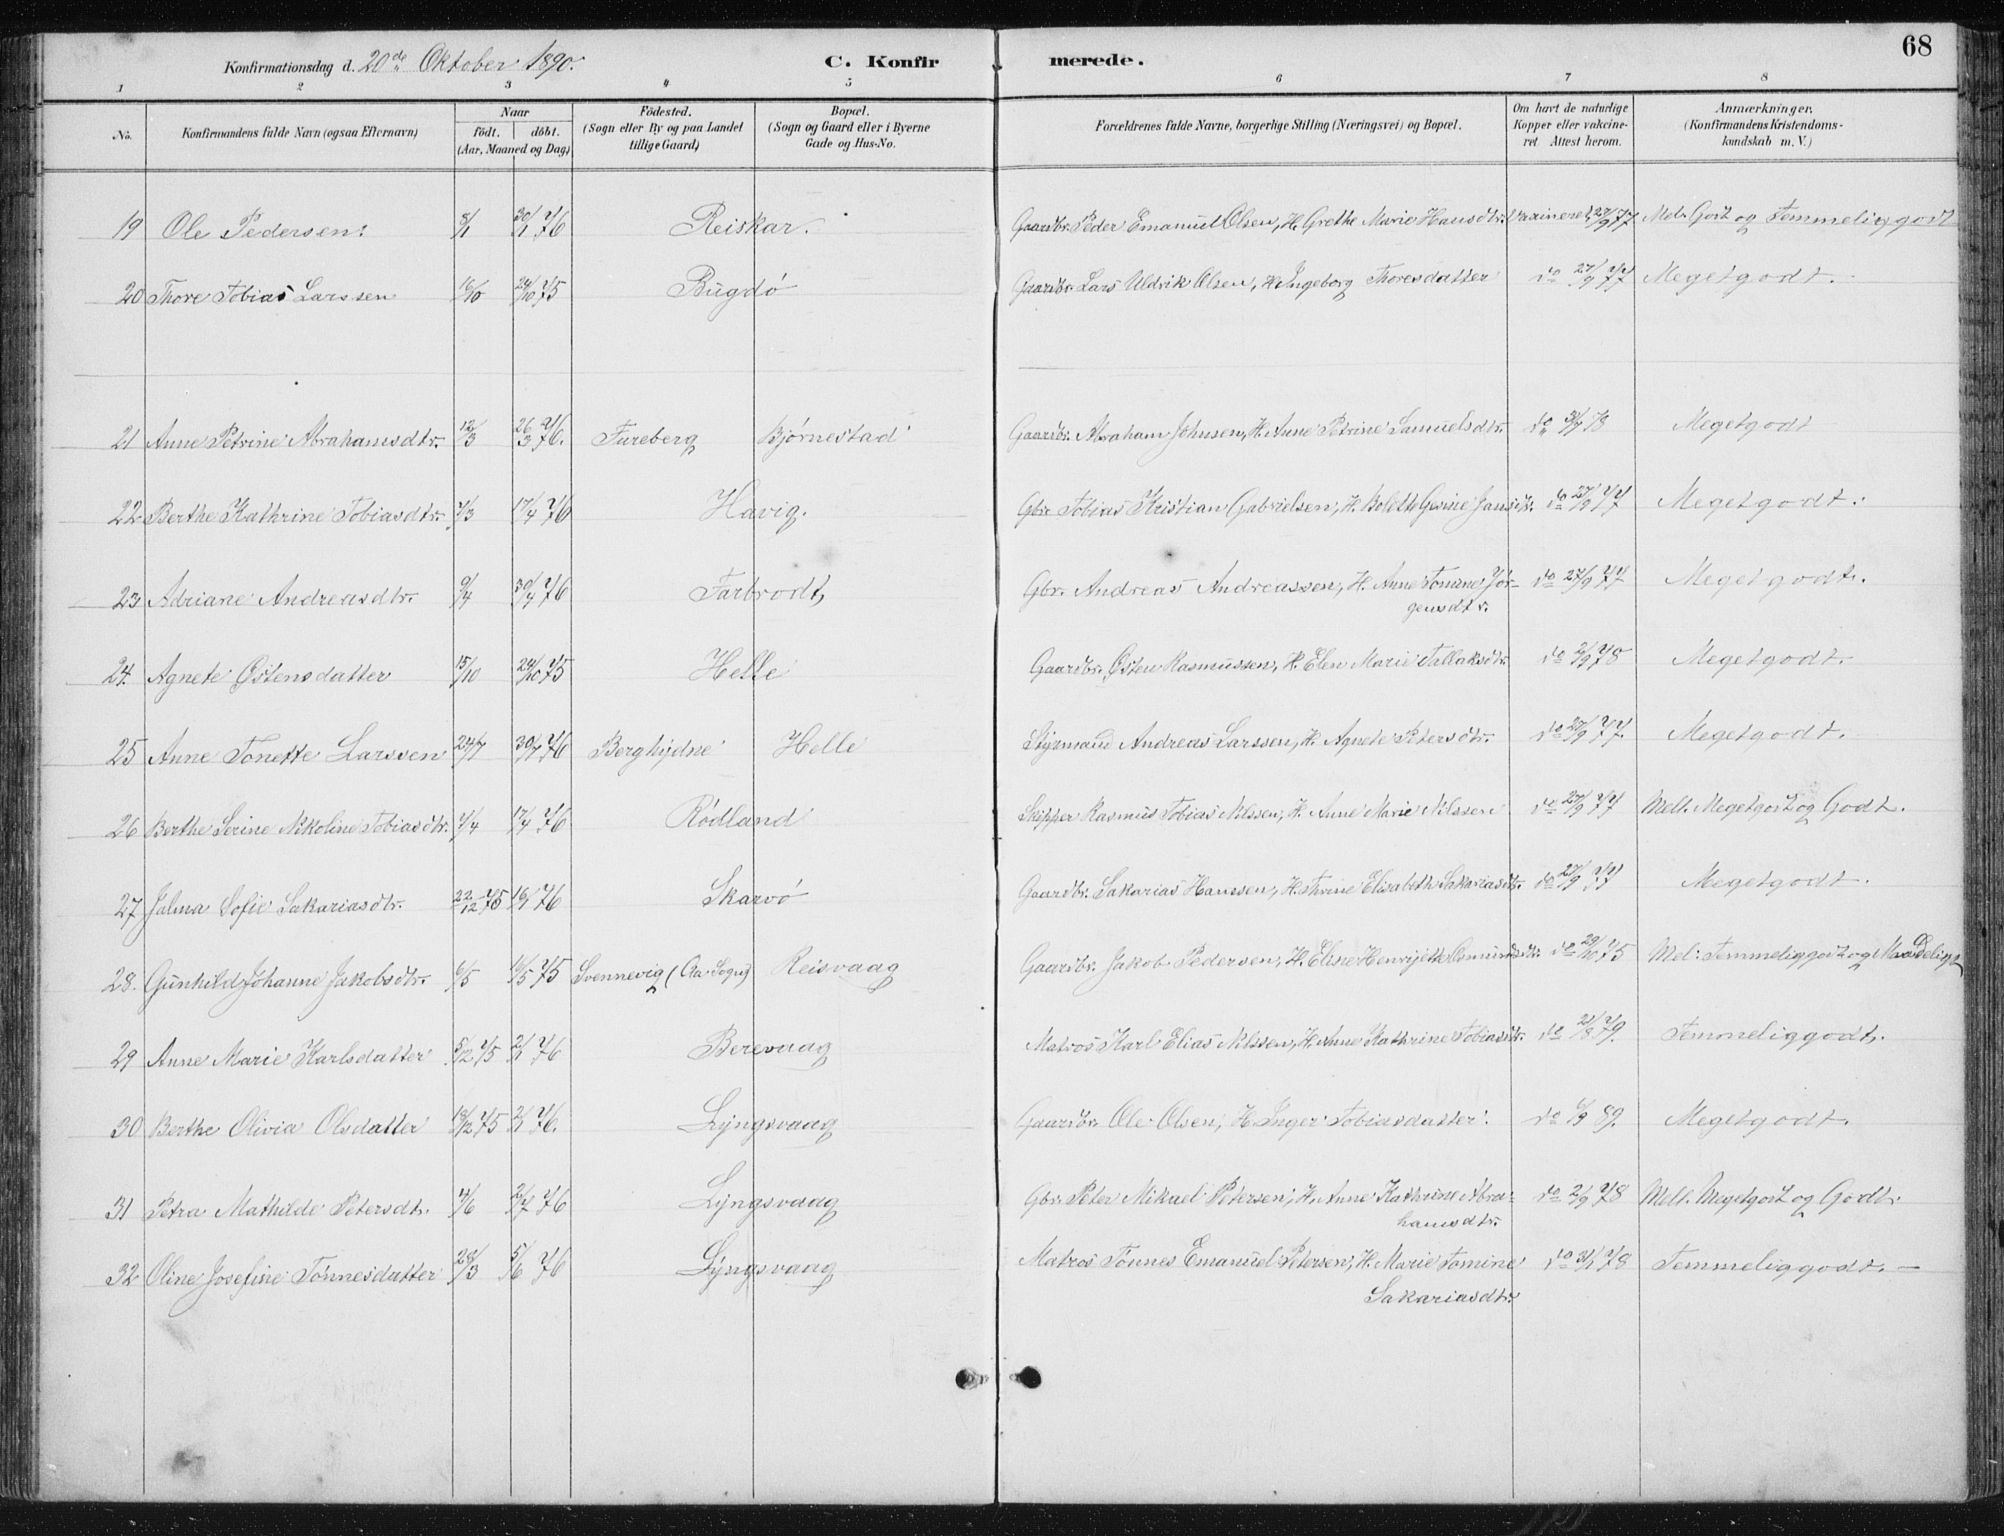 68
Konfirmationsdag d. 20de Oktober 1890.
C. Konfirmerede.
1 2 3 4 5 6 7 8
No.
Konfirmandens fulde Navn (ogsaa Efternavn)
Naar
födt. | döbt.
(Aar, Maaned og Dag)
Födested.
(Sogn eller By og paa Landet
tillige Gaard)
Bopæl.
(Sogn og Gaard eller i Byerne
Gade og Hus-No.
Forældrenes fulde Navne, borgerlige Stilling (Næringsvei) og Bopæl.
Om havt de naturlige
Kopper eller vakcine-
ret Attest herom.
Anmærkninger.
(Konfirmandens Kristendoms-
kundskab m. V.)
19 Ole Pedersen. 8/1 30/1 76 Reiskar. Gaardbr. Peder Emanuel Olsen, H. Grethe Marie Hansdtr. Vaxineret 27/9 77 Mel. Godt og Temmeliggodt
20 Thore Tobias Larssen 16/10 24/10 75 Bugdö Gaardbr. Lars Uldrik Olsen, H. Ingeborg Thoresdatter do 27/9 77 Megetgodt.
21 Anne Petrine Abrahamsdtr. 12/3 26/3 76. Fureberg Bjørnestad Gaardbr. Abraham Johnsen, H. Anne Petrine Samuelsdtr. do 78 Megetgodt
22 Berthe Kathrine Tobiasdtr. 7/3 17/4 76 Havig. Gbr. Tobias Kristian Gabrielsen, H. Bolette Gurine do 27/9 77 Megetgodt.
23 Adriane Andreasdtr. 9/4 30/4 76 Farbrodt, Gbr. Andreas Andreassen, H. Anne Tomine Jör-
gensdtr. do 27/9 77 Megetgodt.
24. Agnete Østensdatter 15/10 24/10 75 Helle Gaardbr. Østen Rasmussen, H. Elen Marie Tallaksdtr. do 2/9 78 Megetgodt.
25 Anne Tonette Larssen 24/7 30/7 76 Berghydne Helle Styrmand Andreas Larssen, H. Agnete Petersdtr. do 27/9 77. Megetgodt.
26 Berthe Serine Nikoline Tobiasdtr. 7/4 17/4 76 Rödland Skipper Rasmus Tobias Nilssen, H. Anne Marie Nilssen do 27/9 77 Mell. Megetgodt og Godt.
27 Jalma Sofie Sakariasdtr. 22/12 75 16/1 76 Skarvö Gaardbr. Sakarias Hanssen, H. Thrine Elisabeth Sakariasdtr. do 27/9 77 Megetgodt.
28. Gunhild Johanne Jakobsdtr. 6/5 16/5 75 Svennevig (Aa Sogn) Reisvaag Gaardbr. Jakob Pedersen, H. Elise Henrijette Osmundsdtr. do 29/10 75 Mel. Temmeliggodt og Maadelig
29 Anne Marie Karlsdatter 5/12 75 2/1 76 Berevaag Matros Karl Elias Nilssen, H. Anne Kathrine Tobiasdtr. do 21/8 79. Temmeliggodt.
30 Berthe Olivia Olsdatter 18/12 75 2/1 76. Lyngsvaag Gaardbr. Ole Olsen, H. Inger Tobiasdatter. do 89. Megetgodt.
31 Petra Mathilde Petersdt. 4/6 2/7 76 Lyngsvaag Gbr. Peter Mikael Petersen, H. Anne Kathrine Abra-
hamsdtr. do 2/9 78 Mell. Megetgodt og Godt.
32 Oline Josefine Tönnesdatter 28/3 5/6 76 Lyngsvaag Matros Tönnes Emanuel Petersen, H. Marie Tomine
Sakariasdtr. do 31/1 78 Temmeliggodt.